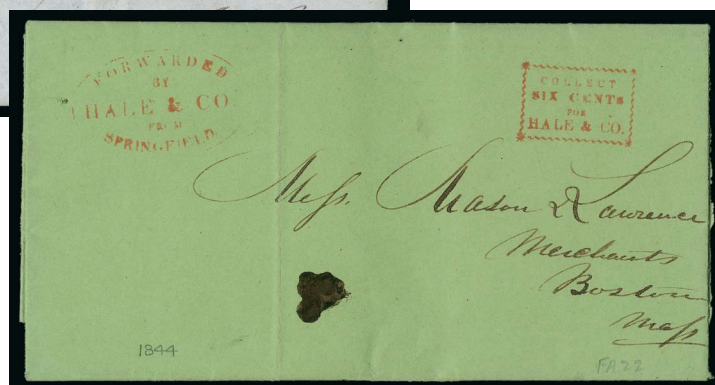 FORWARDED
BY
HALE & CO
FROM
SPRINGFIELD
COLLECT
SIX CENTS
FOR
HALE & CO.
Mess. Mason & Lawrence
Merchants
Boston
Mass
1844
FA22